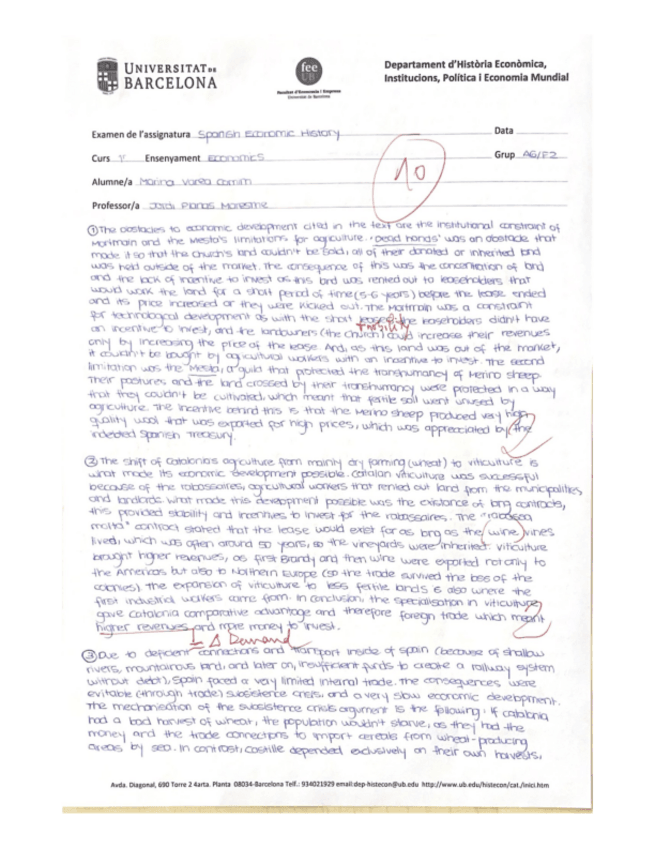 UNIVERSITAT DE
BARCELONA
fee
UB
Facultat d'Economia i Empresa
Universitat de Barcelona
Departament d'Història Econòmica,
Institucions, Política i Economia Mundial
Examen de l'assignatura Spanish Economic History
Data
Curs 1r Ensenyament ECONOMICS
Grup AG/F2
Alumne/a Marina
Professor/a Jordi Planas Maresme
10
① The obstacles to economic development cited in the text are the institutional constraint of
Mortmain and the Mesta's limitations for agriculture. "Dead hands" was an obstacle that
made it so that the church's land couldn't be sold, all of their donated or inherited land
was held outside of the market. The consequence of this was the concentration of land
and the lack of incentive to invest as this land was rented out to leaseholders that
would work the land for a short period of time (5-6 years) before the lease ended
and its price increased or they were kicked out. The Mortmain was a constraint
for technological development as with the short lease the leaseholders didn't have
an incentive to invest, and the landowners (the church) could increase their revenues
only by increasing the price of the lease. And, as this land was out of the market,
it couldn't be bought by agricultural workers with an incentive to invest. The second
limitation was the "Mesta", a guild that protected the transhumancy of Merino sheep.
Their pastures and the land crossed by their transhumancy were protected in a way
that they couldn't be cultivated, which meant that fertile soil went unused by
agriculture. The incentive behind this is that the Merino sheep produced very high
quality wool that was exported for high prices, which was appreciated by the
indebted Spanish Treasury.
② The shift of Catalonia's agriculture from mainly dry farming (wheat) to viticulture is
what made its economic development possible. Catalan viticulture was successful
because of the rabassaires, agricultural workers that rented out land from the municipalities
and landlords. What made this development possible was the existance of long contracts,
this provided stability and incentives to invest for the rabassaires. The "rabassa
morta" contract stated that the lease would exist for as long as the wine vines
lived, which was often around 50 years, so the vineyards were inherited. Viticulture
brought higher revenues, as first Brandy and then wine were exported not only to
the Americas but also to Northern Europe (so the trade survived the loss of the
colonies). The expansion of viticulture to less fertile lands is also where the
first industrial workers came from. In conclusion, the specialisation in viticulture
gave Catalonia comparative advantage and therefore foreign trade which meant
higher revenues and more money to invest.
Δ Demand
③ Due to deficient connections and transport inside of Spain (because of shallow
rivers, mountainous land, and later on, insufficient funds to create a railway system
without debt), Spain faced a very limited internal trade. The consequences were
evitable (through trade) subsistence crisis, and a very slow economic development.
The mechanisation of the subsistence crisis argument is the following: If Catalonia
had a bad harvest of wheat, the population wouldn't starve, as they had the
money and the trade connections to import cereals from wheat-producing
areas by sea. In contrast, Castille depended exclusively on their own harvests,
Avda. Diagonal, 690 Torre 2 4arta. Planta 08034-Barcelona Telf.: 934021929 email:dep-histecon@ub.edu http://www.ub.edu/histecon/cat./inici.htm